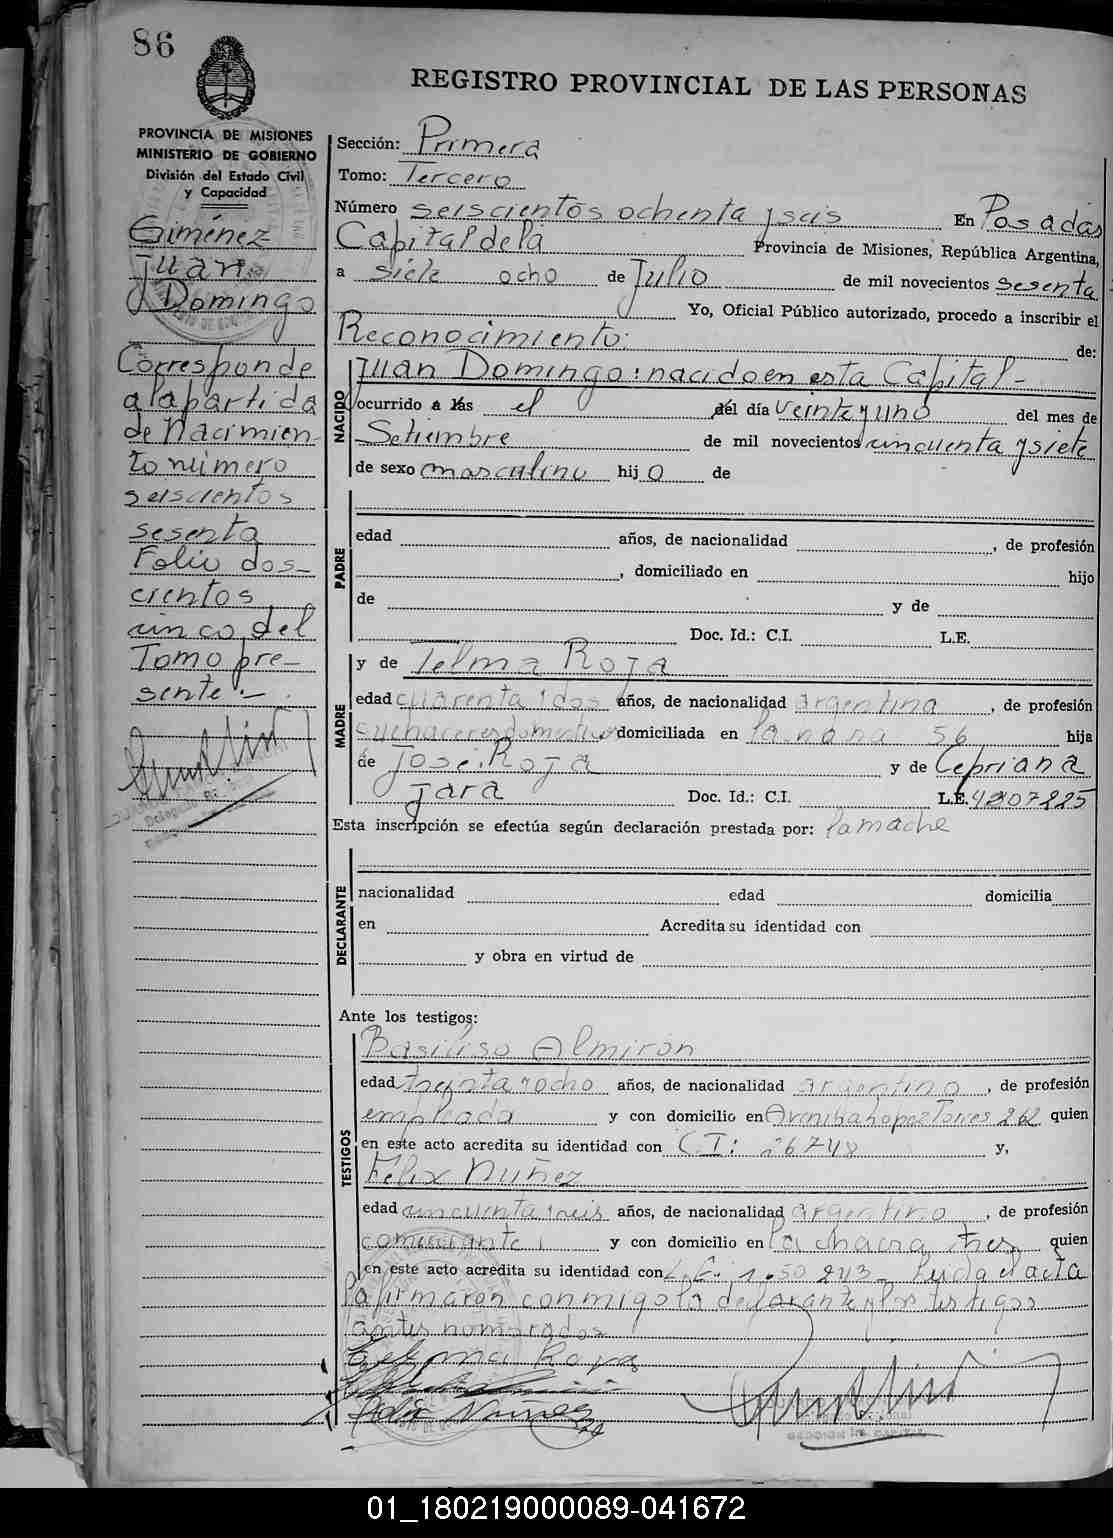 86
REGISTRO PROVINCIAL DE LAS PERSONAS
PROVINCIA DE MISIONES
MINISTERIO DE GOBIERNO
División del Estado Civil
y Capacidad
Giménez
Juan
Domingo
Corresponde
a la partida
de Nacimien
to número
seiscientos
sesenta
Folio dos-
cientos
cinco del
Tomo pre-
sente.-
Sección: Primera
Tomo: Tercero
Número seiscientos ochenta y seis En Posadas
Capital de la Provincia de Misiones, República Argentina,
a siete ocho de Julio de mil novecientos sesenta
Yo, Oficial Público autorizado, procedo a inscribir el
Reconocimiento: de:
NACIDO
Juan Domingo: nacido en esta Capital-
ocurrido a las el del día veinte y uno del mes de
Setiembre de mil novecientos cincuenta y siete
de sexo masculino hijo de
PADRE
edad años, de nacionalidad , de profesión
, domiciliado en hijo
de y de
Doc. Id.: C.I. L.E.
MADRE
y de Telma Roja
edad cuarenta i dos años, de nacionalidad argentina , de profesión
quehaceres domesticos domiciliada en 56 hija
de José Roja y de Cepriana
Jara Doc. Id.: C.I. L.E. 4207225
Esta inscripción se efectúa según declaración prestada por: la madre
DECLARANTE
nacionalidad edad domicilia
en Acredita su identidad con
y obra en virtud de
Ante los testigos:
TESTIGOS
Basiliso Almirón
edad treinta y ocho años, de nacionalidad argentino , de profesión
empleado y con domicilio en Torres 262 quien
en este acto acredita su identidad con C.I: 26748 y,
Félix Nuñez
edad cincuenta i seis años, de nacionalidad argentino , de profesión
comerciante y con domicilio en la chacra tres quien
en este acto acredita su identidad con 1.50 243- Leida el acta
la firmaron conmigo la declarante y los testigos
antes nombrados
Telma Roja
Felix Nuñez
01_180219000089-041672